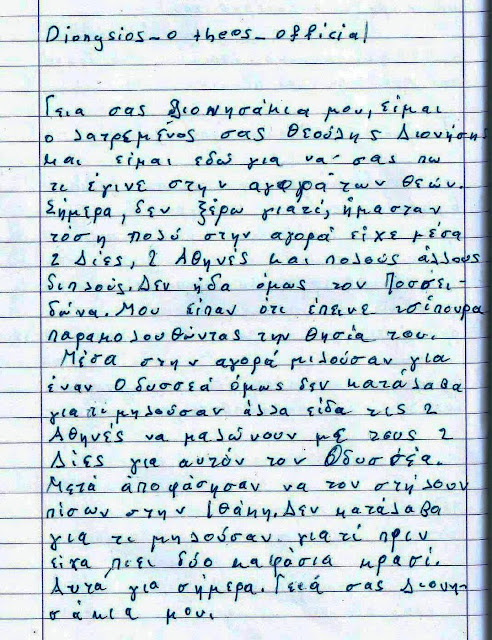 Dionysios_o theos_official
Γεια σας Διονησάκια μου, είμαι
ο λατρεμένος σας Θεούλης Διονήσης
και είμαι εδώ για να σας πω
τι έγινε στην αγορά των θεών.
Σήμερα, δεν ξέρω γιατί, ήμασταν
τόση πολύ στην αγορά είχε μέσα
2 Δίες, 2 Αθηνές και πολούς άλλους
διπλούς. Δεν ήδα όμως τον Ποσσει-
δώνα. Μου είπαν ότι έπεινε τσίπουρα
παρακολουθώντας την θησία του.
Μέσα στην αγορά μιλούσαν για
έναν Οδυσσέα όμως δεν κατάλαβα
για τι μηλούσαν άλλα είδα τις 2
Αθηνές να μαλώνουν με τους 2
Δίες για αυτόν τον Οδυσσέα.
Μετά άποφάσησαν να τον στήλουν
πίσων στην Ιθάκη. Δεν κατάλαβα
για τι μηλούσαν γιατί πριν
είχα πιει δύο καφάσια κρασί.
Αυτά για σήμερα. Γειά σας Διονη-
σάκια μου.